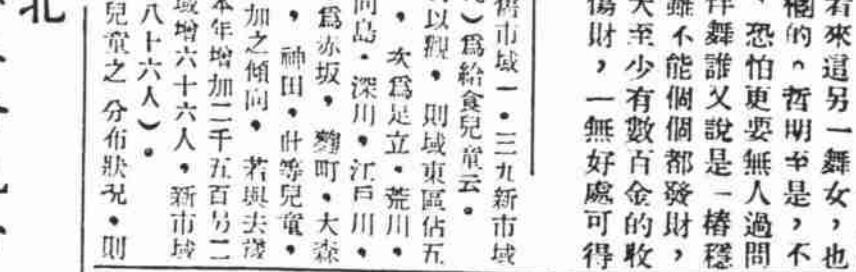 若來這另一舞女,也
的。哲明至是,不
,恐怕更要無人過問
伴舞誰又說是一樁穩
雖不能個個都發財,
大至少有數百金的收
傷財,一無好處可得
舊市域一・三九新市域
)爲給食兒童云。
以觀,則域東區佔五
,次爲足立・荒川,
向島・深川,江戶川,
爲赤坂,麴町,大森
,神田,此等兒童,
加之傾向,若與去歲
本年增加二千五百另二
域增六十六人,新市域
八十六人)。
兒童之 分布狀況,則
北